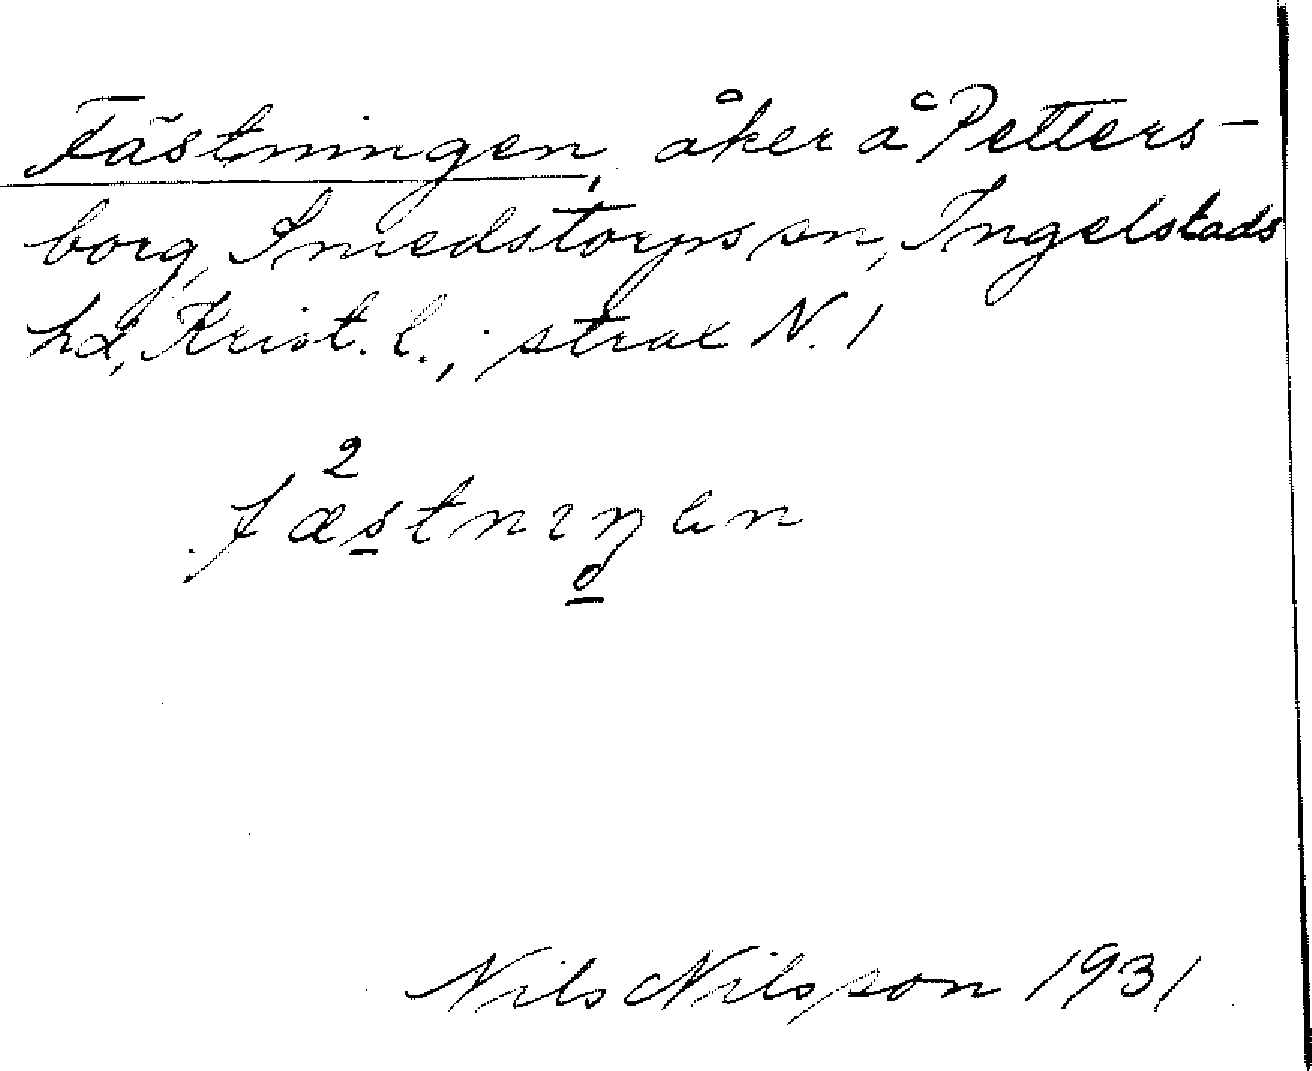 Fästningen, åker å Petters-
borg, Smedstorps sn, Ingelstads
hd, Krist. l.; strax N. 1
2
fæstnıŋen
o
Nils Nilsson 1931